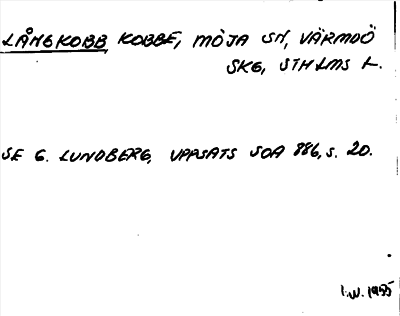 LÅNGKOBB KOBBE, MÖJA SN, VÄRMDÖ
SKG, STHLMS L.
SE G. LUNDBERG, UPPSATS SOA 886, S. 20.
I.W. 1955